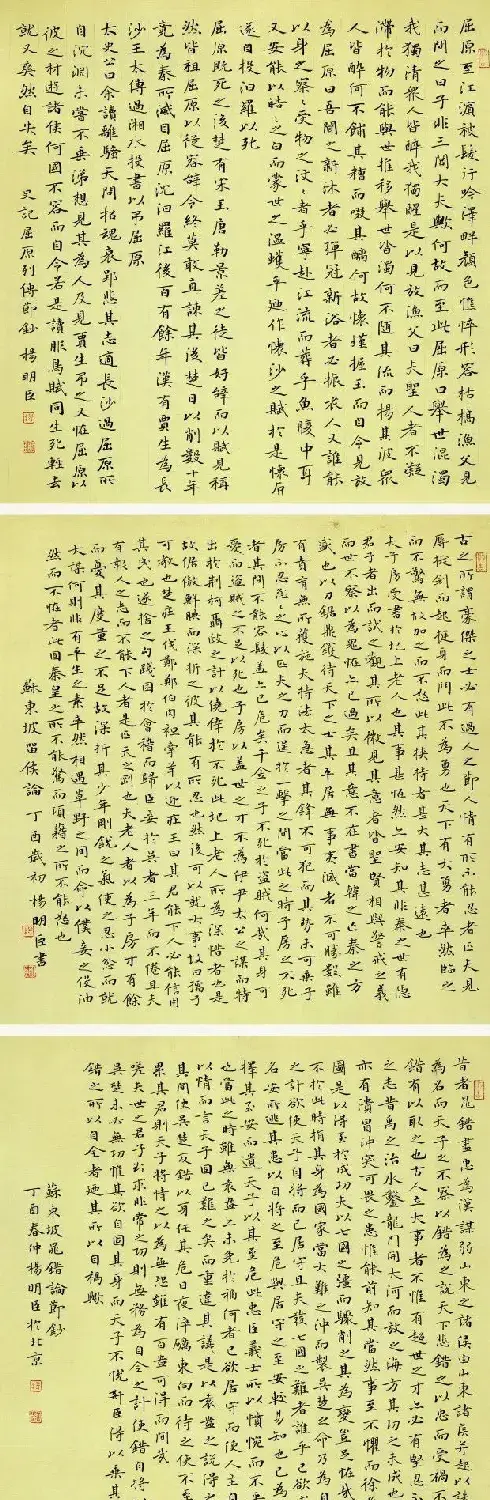 屈原至江濱被髮行吟澤畔顏色憔悴形容枯槁漁父見
而問之曰子非三閭大夫歟何故而至此屈原曰舉世混濁
我獨清眾人皆醉我獨醒是以見放漁父曰夫聖人者不凝
滯於物而能與世推移舉世皆濁何不隨其流而揚其波眾
人皆醉何不餔其糟而啜其醨何故懷瑾握玉而自令見放
為屈原曰吾聞之新沐者必彈冠新浴者必振衣人又誰能
以身之察々受物之汶々者乎寧赴江流而葬乎魚腹中耳
又安能以皓々之白而蒙世之溫蠖乎迺作懷沙之賦於是懷石
遂自投汨羅以死
屈原既死之後楚有宋玉唐勒景差之徒皆好辭而以賦見稱
然皆祖屈原以從容辭令終莫敢直諫其後楚日以削數十年
竟為秦所滅自屈原沈汨羅江後百有餘年漢有賈生為長
沙王太傅過湘水投書以弔屈原
太史公曰余讀離騷天問招魂哀郢悲其志適長沙過屈原所
自沉淵未嘗不垂涕想見其為人及見賈生弔之又怪屈原以
彼之材遊諸侯何國不容而自令若是讀服鳥賦同生死輕去
就又爽然自失矣 史記屈原列傳節鈔 楊明臣
古之所謂豪傑之士必有過人之節人情有所不能忍者匹夫見
辱拔劍而起挺身而鬥此不為勇也天下有大勇者卒然臨之
而不驚無故加之而不怒此其挾持者甚大其志甚遠也
夫子房受書於圯上老人也其事甚怪然亦安知其非秦之世有隱
君子者出而試之觀其所以微見其意者皆聖賢相與警戒之義
而世不察以為鬼物亦已過矣且其意不在書當韓之亡秦之方
盛也以刀鋸鼎鑊待天下之士其平居無事夷滅者不可勝數雖
有賁育無所獲施夫持法太急者其鋒不可犯而其勢未可乘子
房不忍忿々之心以匹夫之力而逞於一擊之間當此之時子房之不死
者其間不能容髮蓋亦已危矣千金之子不死於盜賊何哉其身可
愛而盜賊之不足以死也子房以蓋世之才不為伊尹太公之謀而特
出於荊軻聶政之計以僥倖於不死此圯上老人所為深惜者也是
故倨傲鮮腆而深折之彼其能有所忍也然後可以就大事故曰孺子
可教也楚莊王伐鄭鄭伯肉袒牽羊以迎莊王曰其君能下人必能信用
其民也遂捨之句踐困於會稽而歸臣妾於吳者三年而不倦且夫
有報人之志而不能下人者是匹夫之剛也夫老人者以為子房才有餘
而憂其度量之不足故深折其少年剛銳之氣使之忍小忿而就
大謀何則非有平生之素卒然相遇草野之間而命以僕妾之役油
然而不怪者此固秦皇之所不能驚而項籍之所不能怒也
蘇東坡留侯論 丁酉歲初 楊明臣書
昔者晁錯盡忠為漢謀弱山東之諸侯山東諸侯並起以誅
為名而天子之不察以錯為之說天下悲錯之以忠而受禍不
錯有以取之也古之立大事者不惟有超世之才亦必有堅忍
之志昔禹之治水鑿龍門決大河而放之海方其功之未成也
亦有潰冒沖突可畏之患惟能前知其當然事至不懼而徐
圖是以得至於成功夫以七國之強而驟削之其為變豈足怪哉
不於此時捐其身為國家當大難之沖而制吳楚之命乃為自
之計欲使天子自將而己居守且夫發七國之難者誰乎己欲求
名安所逃其患以自將之至危與居守之至安較易知也己為
擇其至安而遺天子以其至危此忠臣義士所以憤惋而不平
也當此之時雖無袁盎亦未免於禍何者己欲居守而使人主自
以情而言天子固已難之矣而重違其議是以袁盎之說得行
其間使吳楚反錯以身任其危日夜淬礪東向而待之使不至
累其君則天子將恃之以為無恐雖有百盎可得而間哉
嗟夫世之君子欲求非常之功則無務為自全之計使錯自將
吳楚未必無功惟其欲自固其身而天子不悅奸臣得以乘其
錯之所以自全者迺其所以自禍歟
蘇東坡晁錯論節鈔
丁酉春仲楊明臣於北京